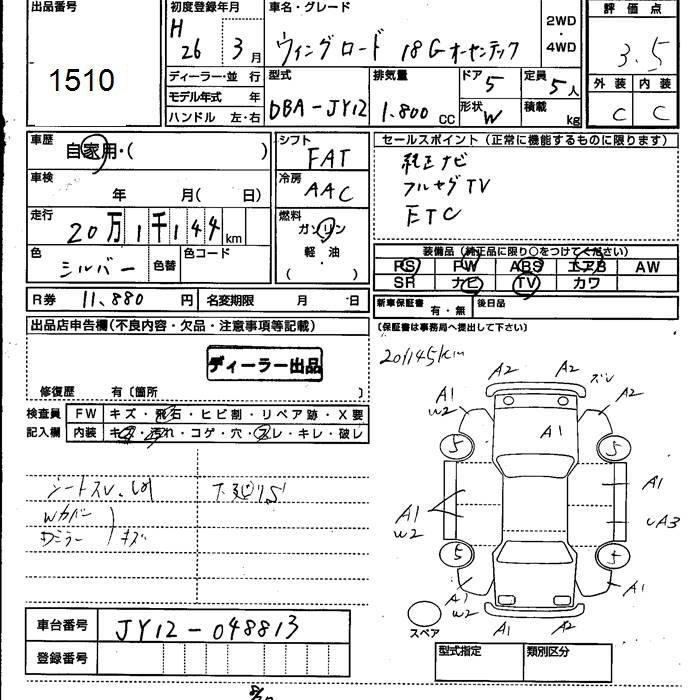 出品番号
1510
初度登録年月
H 26 3月
車名・グレード
ウィングロード 18Gオーセンテック
2WD
・
4WD
評価点
3.5
外装 内装
C C
ディーラー・並 行
モデル年式 年
ハンドル 左・右
型式
DBA-JY12
排気量
1,800 CC
ドア 5
形状 W
定員 5人
積載 kg
車歴
自家用・( )
車検
年 月( 日)
走行
20万1千144km
色
シルバー
色替
色コード
シフト
FAT
冷房
AAC
燃料
ガソリン
軽油
( )
セールスポイント(正常に機能するものに限ります)
純正ナビ
フルセグTV
ETC
装備品(純正品に限り○をつけてください)
PS PW ABS エアB AW
SR ナビ TV カワ
R券 11,880 円 名変期限 月 日
新車保証書 有・無 後日品
(保証書は事務局へ提出して下さい)
出品店申告欄(不良内容・欠品・注意事項等記載)
ディーラー出品
修復歴 有〔箇所 〕
検査員
記入欄
FW キズ・飛石・ヒビ割・リペア跡・X要
内装 キズ・汚れ・コゲ・穴・スレ・キレ・破レ
シートスレ、
Wカバー
Dミラー
キズ
201145km
A2 A2 スレ
A1 A2
W2
A1
5 5
A1 A1
W2
A3
5 5
A1 A1
W2
A1 A2
スペア
車台番号 JY12-048813
登録番号
型式指定 類別区分